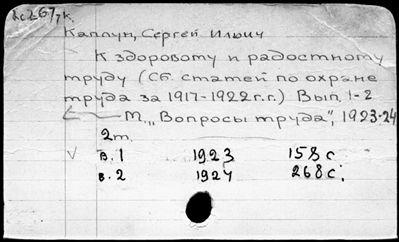 2с267/7к.
Каплун, Сергей Ильич
К здоровому и радостному
труду (Сб. статей по охране
труда за 1917-1922 г.г.) Вып. 1-2
М., "Вопросы труда", 1923-24
2т.
в. 1 1923 158 с.
в. 2 1924 268 с.